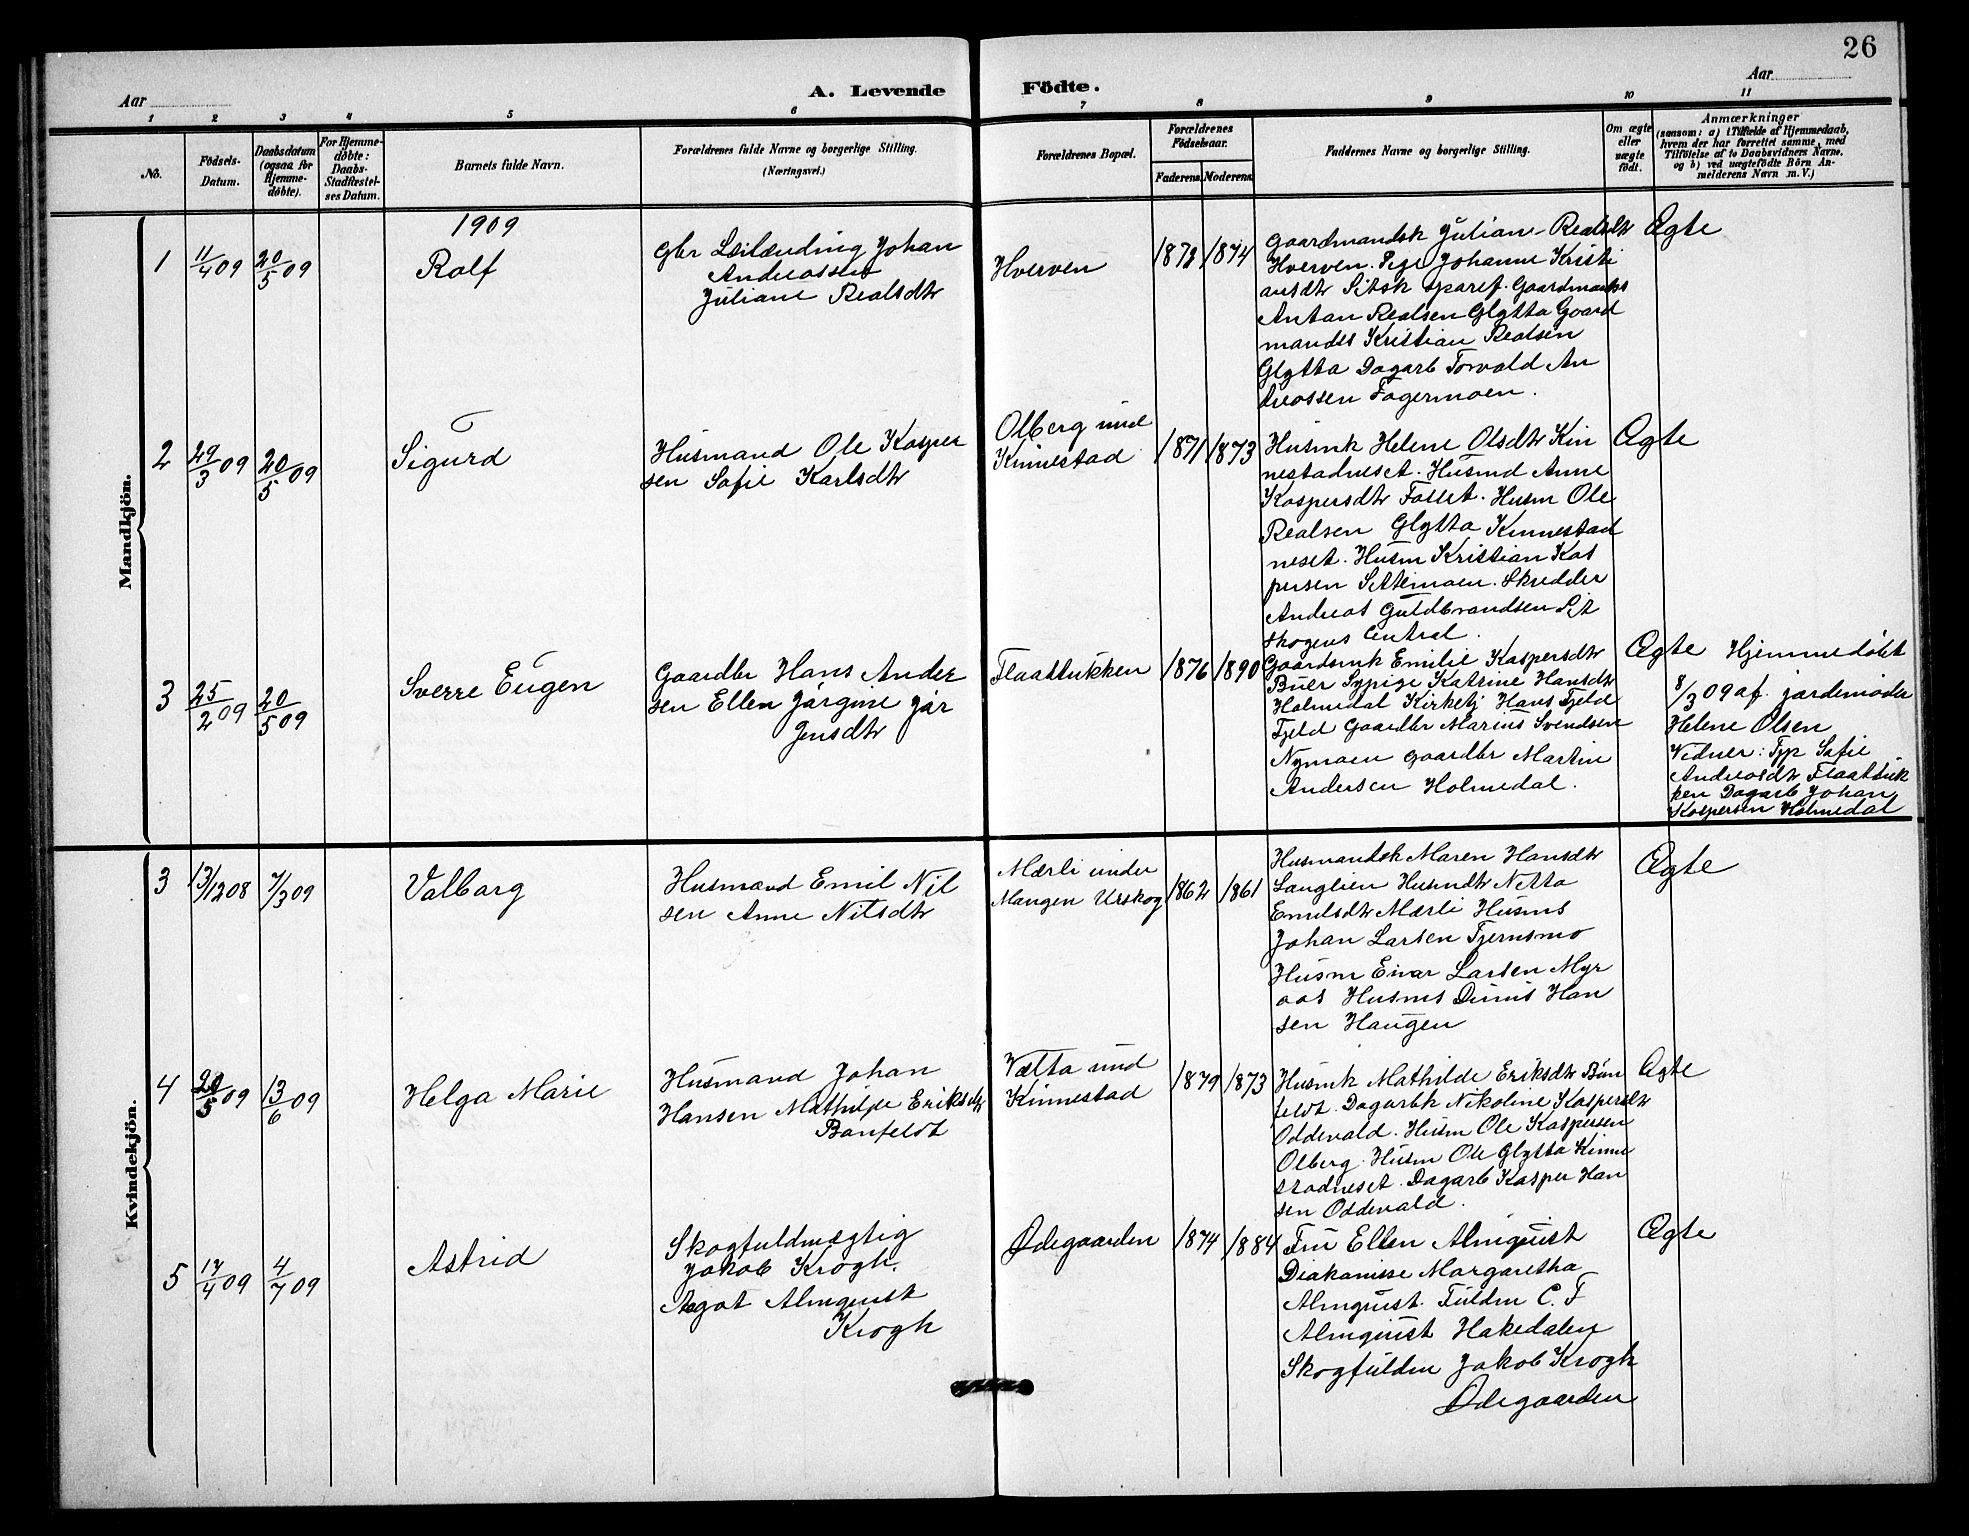 26
Aar
A. Levende Födte.
Aar
1 2 3 4 5 6 7 8 9 10 11
No.
Födsels-
Datum.
Daabsdatum
(ogsaa for
Hjemme-
døbte).
For Hjemme-
døbte:
Daabs-
Stadfæstel-
ses Datum.
Barnets fulde Navn.
Forældrenes fulde Navne og borgerlige Stilling.
(Næringsvei.)
Forældrenes Bopæl.
Forældrenes
Födselsaar.
Faderens. Moderens.
Faddernes Navne og borgerlige Stilling.
Om ægte
eller
uægte
født.
Anmærkninger
(saasom: a) i Tilfælde af Hjemmedaab,
hvem der har forrettet samme, med
Tilföielse af to Daabsvidners Navne,
og b) ved uægtefödte Börn An-
melderens Navn m. V.)
Mandkjön.
1909
1 11/4 09 20/5 09
Rolf
Gbr Leilænding Johan
Andreassen
Juliane Realsdtr
Hverven
1872 1874
Gaardmandsk Juliane Realsdtr
Hverven. Pige Johanne Kristi
ansdtr Sitsk sparef. Gaardmands
Anton Realsen Glytta Gaard
mands Kristian Realsen
Glytta Dagarb Torvald An
dreassen Fagermoen.
Ægte
2 29/3 09 20/5 09
Sigurd
Husmand Ole Kasper
sen Sofie Karlsdtr
Olberg und
Kinnestad
1871 1873
Husmk Helene Olsdtr Kin
nestadneset. Husmd Anne
Kaspersdtr Fosset. Husm Ole
Realsen Glytta Kinnestad
neset. Husm Kristian Kas
persen Settemoen. Skredder
Andreas Guldbrandsen Sit
skogens Central.
Ægte
3 25/2 09 20/5 09
Sverre Eugen
Gaardbr Hans Ander
sen Ellen Jørgine Jør
gensdtr
Flaatbukken
1876 1890
Gaardsmk Emilie Kaspersdtr
Buer Sypige Katrine Hansdtr
Holmedal Kirketj Hans Fjeld
Fjeld Gaardbr Marius Svendsen
Nymoen Gaardbr Martin
Andersen Holmedal.
Ægte
Hjemmedøbt
8/3 09 af jordemoder
Helene Olsen
Vidner: Tjp Sofie
Andreasdtr Flaatbuk
ken Dagarb Johan
Kaspersen Holmedal
Kvindekjön.
3 13/12 08 7/3 09
Valborg
Husmand Emil Nil
sen Anne Nilsdtr
Mærli under
Mangen Urskog
1862 1861
Husmandsk Maren Hansdtr
Langlien Husmdtr Netta
Emilsdtr Mærli Husms
Johan Larsen Tjernsmo
Husm Einar Larsen Myr
aas Husms Dinus Han
sen Haugen
Ægte
4 20/5 09 13/6 09
Helga Marie
Husmand Johan
Hansen Mathilde Eriksdtr
Bonfeldt
Vætta und
Kinnestad
1879 1873
Husmk Mathilde Eriksdtr Bon
feldt. Dagarbk Nikoline Kaspersdtr
Oddevald. Husm Ole Kaspersen
Olberg. Husm Ole Glytta Kinne
stadneset. Dagarb Kasper Han
sen Oddevald.
Ægte
5 17/4 09 4/7 09
Astrid
Skogfuldmægtig
Jakob Krogh.
Aagot Almquist
Krogh
Ødegaarden
1874 1884
Fru Ellen Almquist
Diakonisse Margaretha
Almquist. Fuldm C. F
Almquist Hakedalen
Skogfuldm Jakob Krogh
Ødegaarden
Ægte